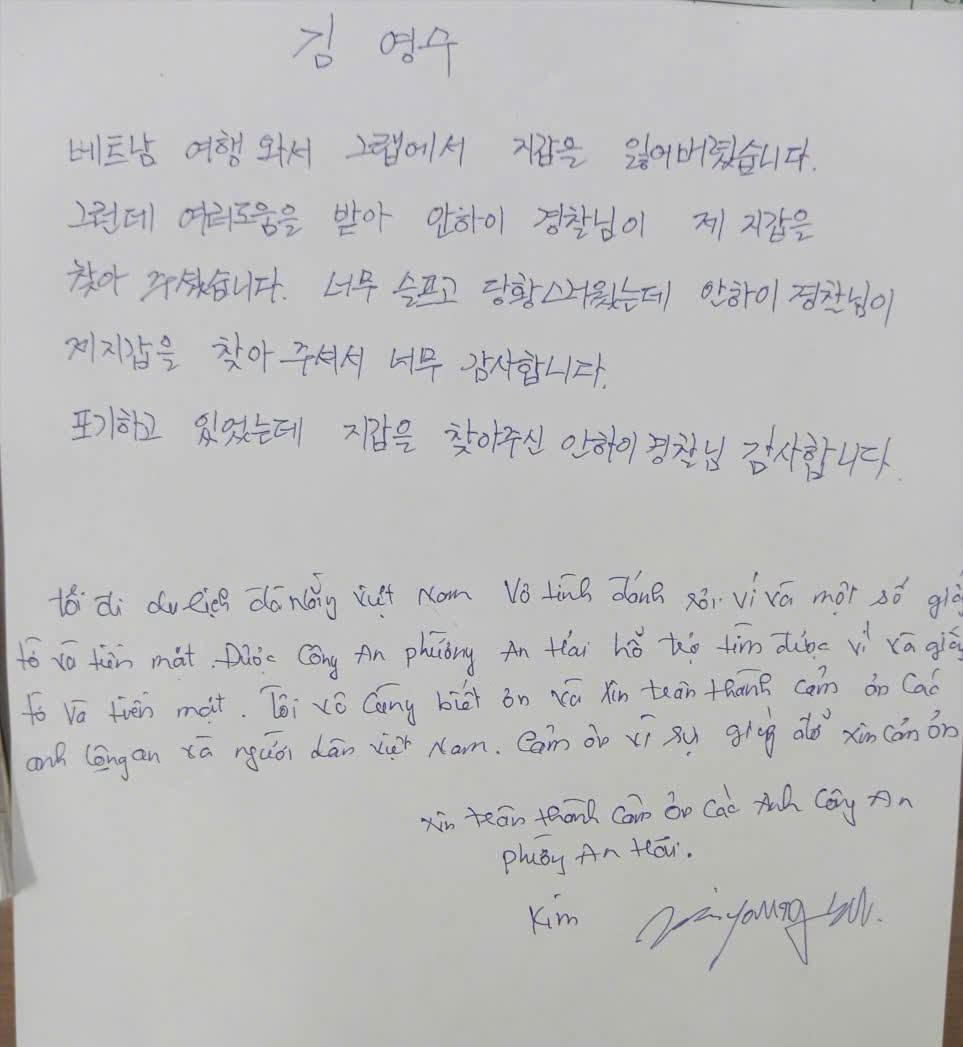 김 영수
베트남 여행 와서 그랩에서 지갑을 잃어버렸습니다.
그런데 여러도움을 받아 안하이 경찰님이 제 지갑을
찾아 주셨습니다. 너무 슬프고 당황스러웠는데 안하이 경찰님이
제지갑을 찾아 주셔서 너무 감사합니다.
포기하고 있었는데 지갑을 찾아주신 안하이 경찰님 감사합니다.
tôi đi du lịch đà nẵng việt Nam Vô tình đánh rơi ví và một số giấy
tờ và tiền mặt. Được Công An phường An Hải hỗ trợ tìm được ví và giấy
tờ và tiền mặt. Tôi vô Cùng biết ơn và Xin trân thành cảm ơn Các
anh Công an và người dân việt Nam. Cảm ơn vì sự giúp đỡ xin cảm ơn
xin trân thành Cảm ơn Các Anh Công An
phường An Hải.
Kim